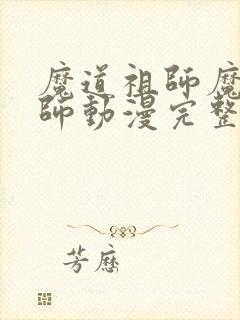 魔道祖師魔
師動漫完整
芳歷